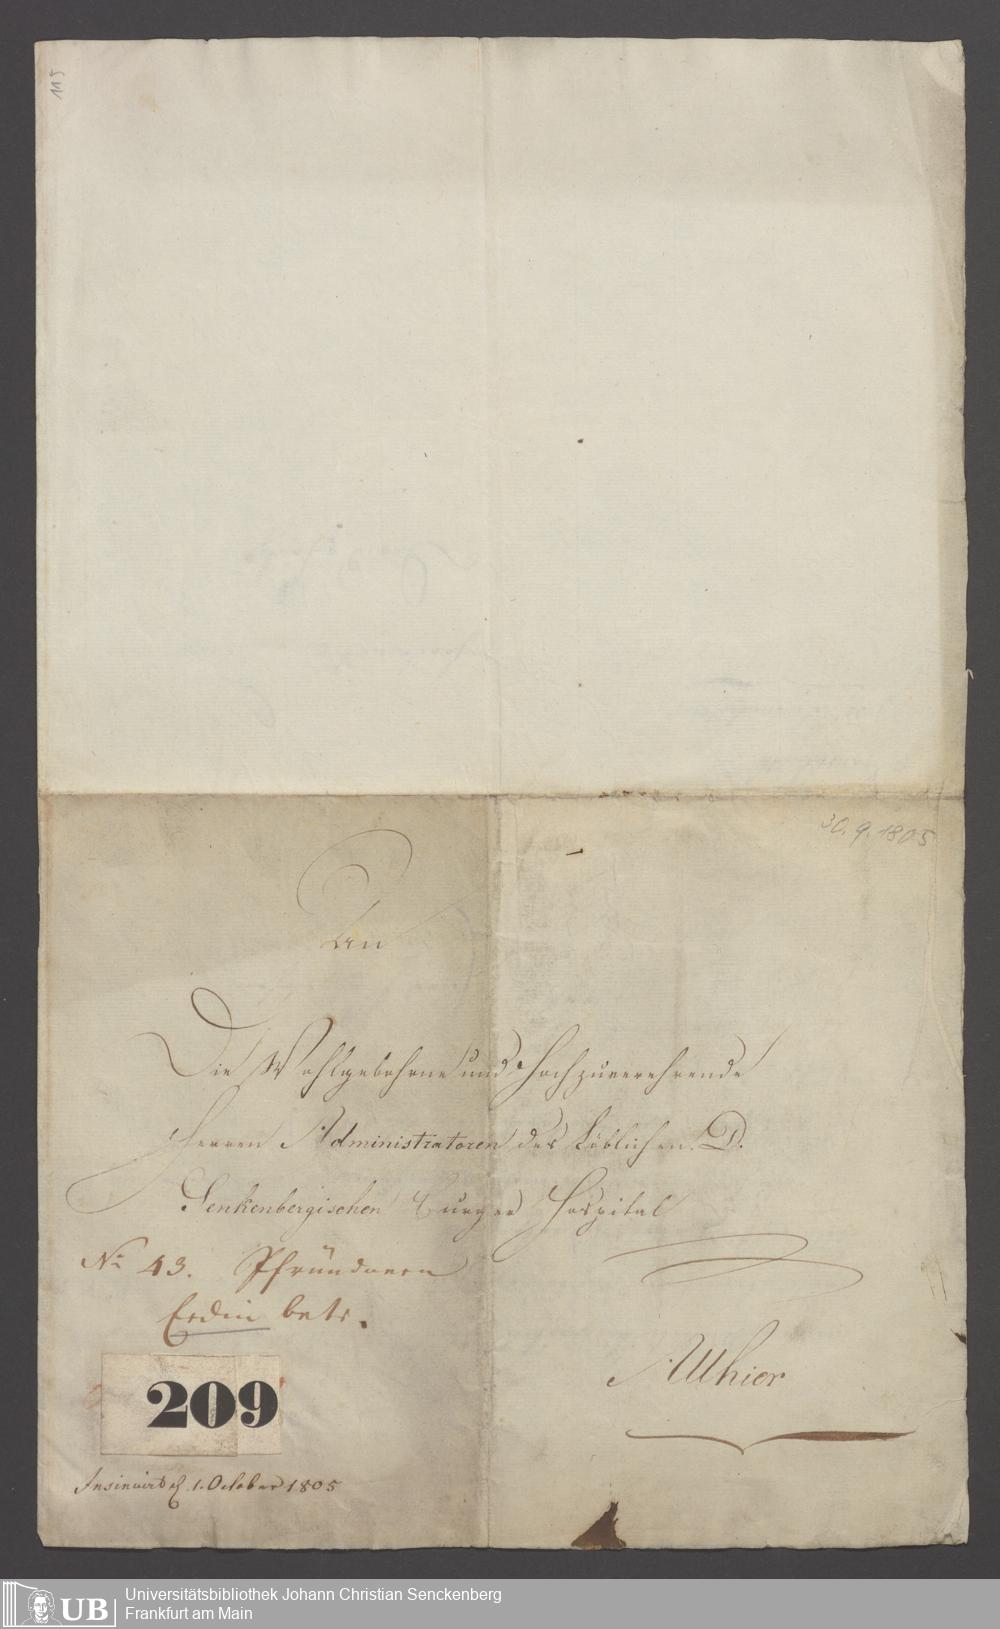 115
30. 9. 1805
An
Die Wohlgebohrne und Hochzuverehrende
Herren Administratoren des Löblichen D.
Senkenbergischen Burger Hospital
No 43. Pfründnern
Erdin betr.
Allhier
209
Insinuirt d. 1. October 1805
UB
Universitätsbibliothek Johann Christian Senckenberg
Frankfurt am Main